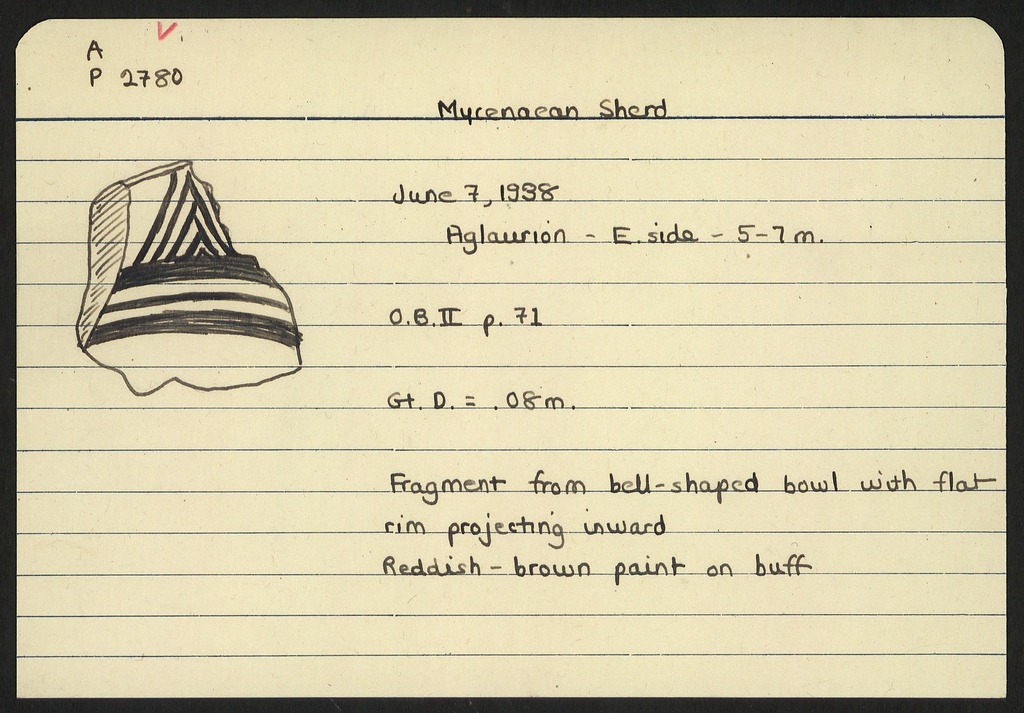 A
P 2780
Mycenaean Sherd
June 7, 1938
Aglaurion - E. side - 5-7 m.
O.B.II p. 71
Gt. D. = .08 m.
Fragment from bell-shaped bowl with flat
rim projecting inward
Reddish-brown paint on buff